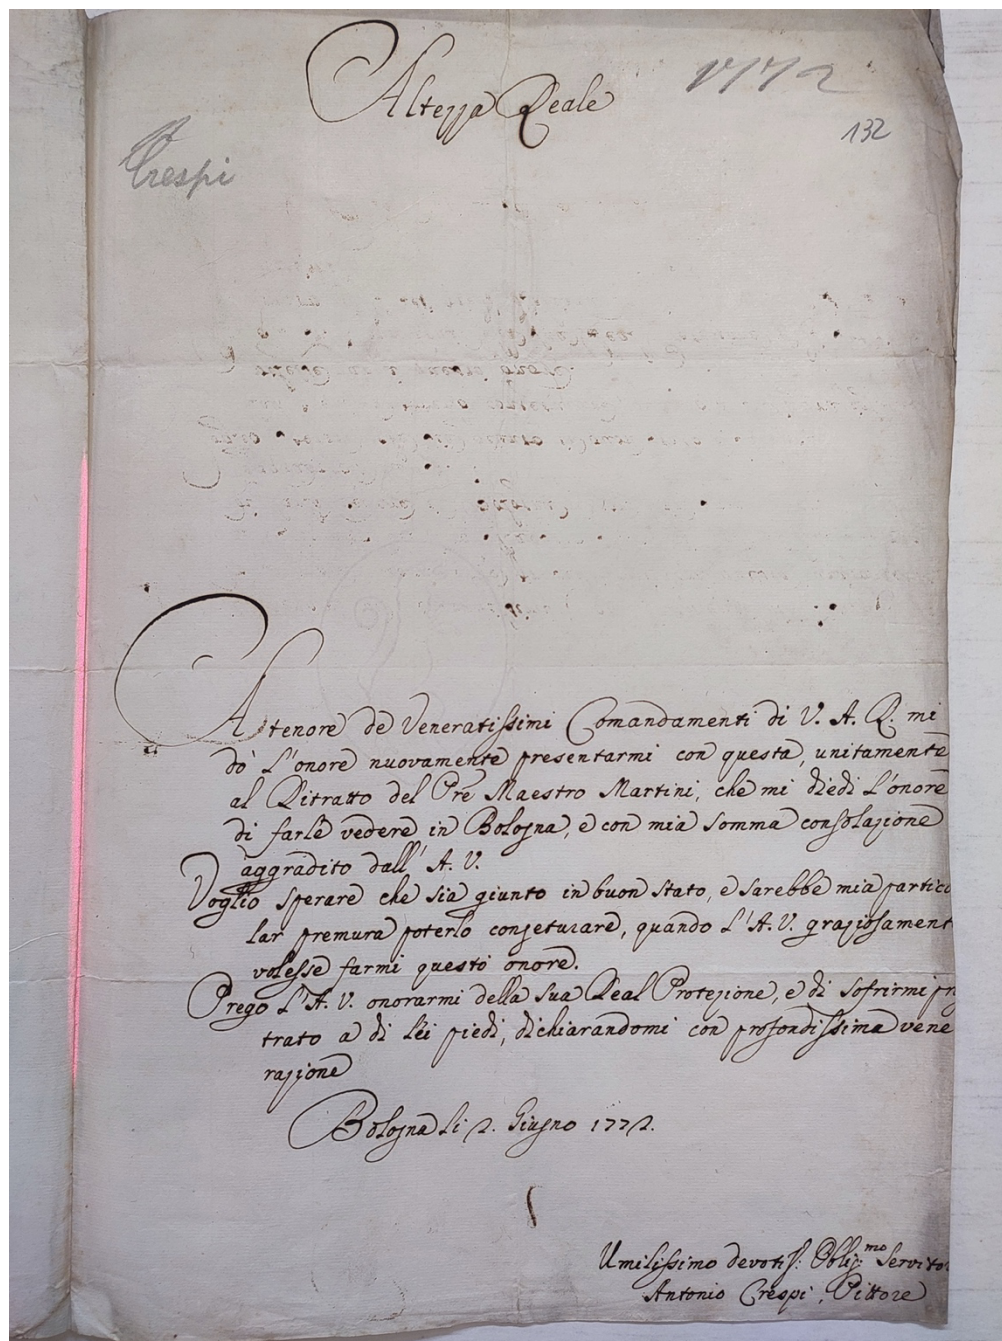 Altezza Reale
1772
132
Crespi
A tenore de Veneratissimi Comandamenti di V. A. R. mi
dò L'onore nuovamente presentarmi con questa, unitamente
al Ritratto del Pre Maestro Martini, che mi diedi L'onore
di farle vedere in Bologna, e con mia somma consolazione
aggradito dall' A. V.
Voglio sperare che sia giunto in buon stato, e sarebbe mia partico
lar premura poterlo conzeturare, quando L'A. V. graziosament
volesse farmi questo onore.
Prego L'A. V. onorarmi della sua Real Protezione, e di sofrirmi
trato a di Lei piedi, dichiarandomi con profondissima vene
razione
Bologna Li 2. Giugno 1772.
Umilissimo devotiss: Oblig:mo Servitor
Antonio Crespi, Pittore